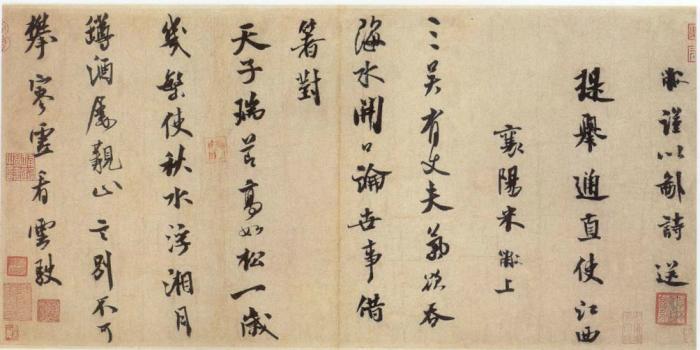 黻謹以鄙詩送
提舉通直使江西
襄陽米黻上
三吳有丈夫氣欲吞
海水開口論世事借
箸對
天子瑞節高如松一歲
幾繁使秋水浮湘月
罇酒屢言別不可
攀寒雲看雲駛